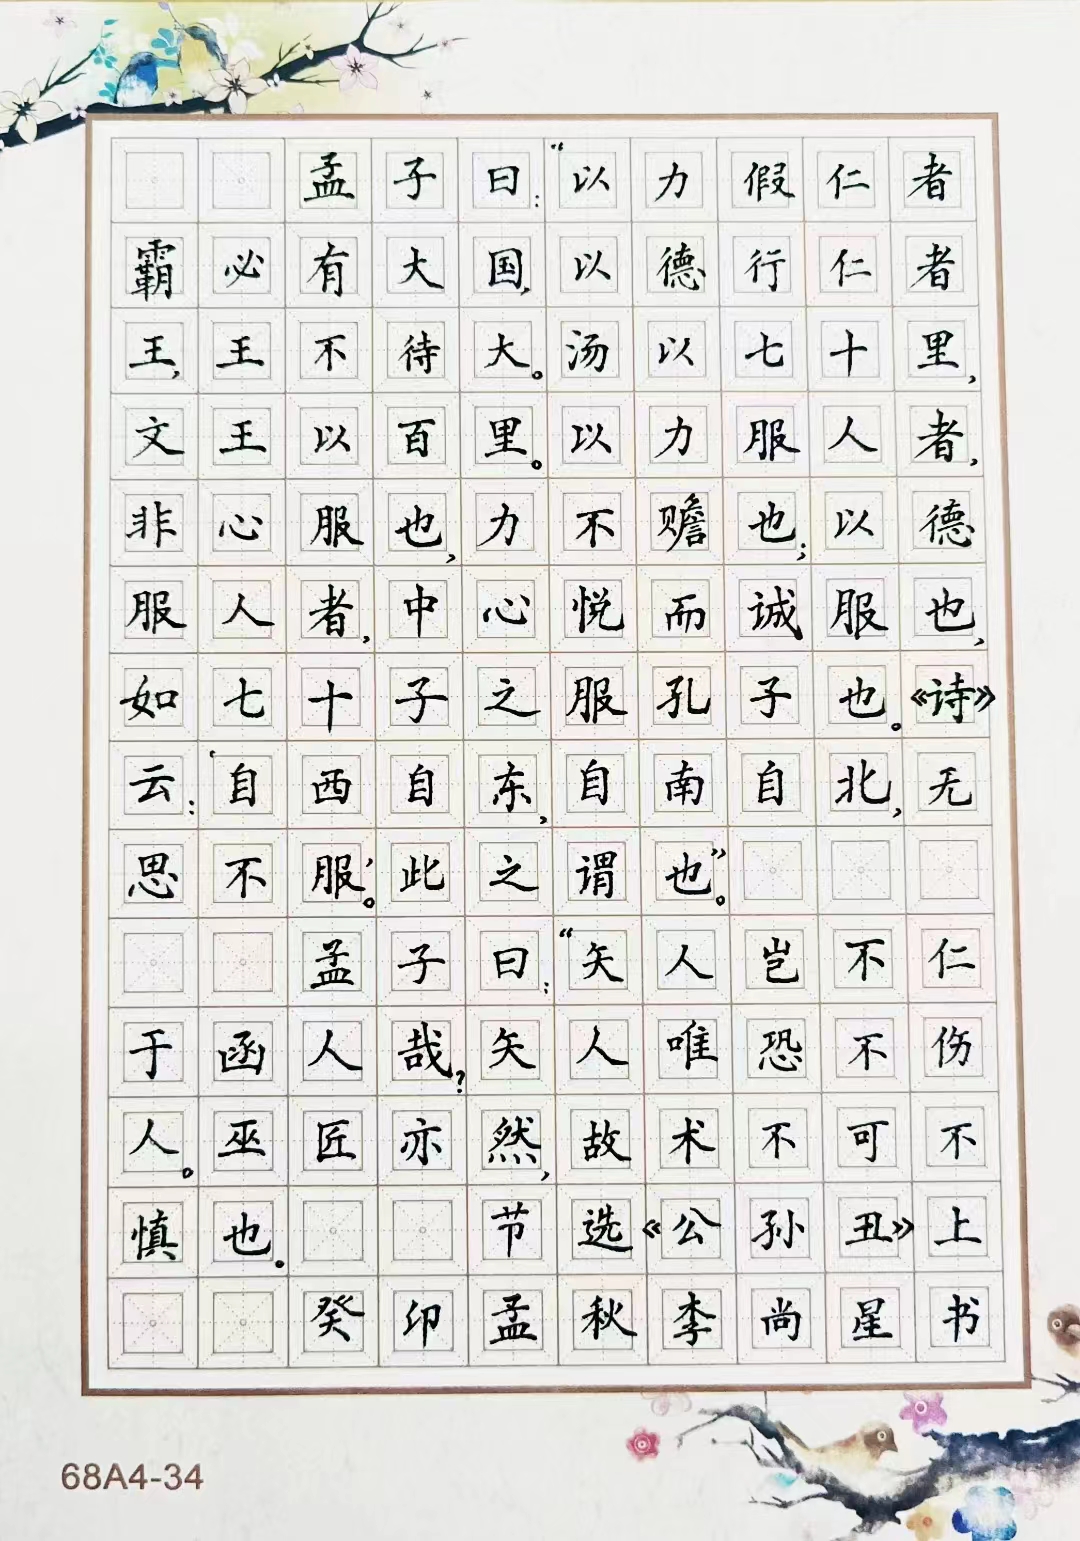 孟子曰：“以力假仁者
霸必有大国，以德行仁者
王，王不待大。汤以七十里，
文王以百里。以力服人者，
非心服也，力不赡也；以德
服人者，中心悦而诚服也，
如七十子之服孔子也。《诗》
云：‘自西自东，自南自北，无
思不服’。此之谓也”。
孟子曰：“矢人岂不仁
于函人哉？矢人唯恐不伤
人。巫匠亦然，故术不可不
慎也。 节选《公孙丑》上
癸卯孟秋李尚星书
68A4-34